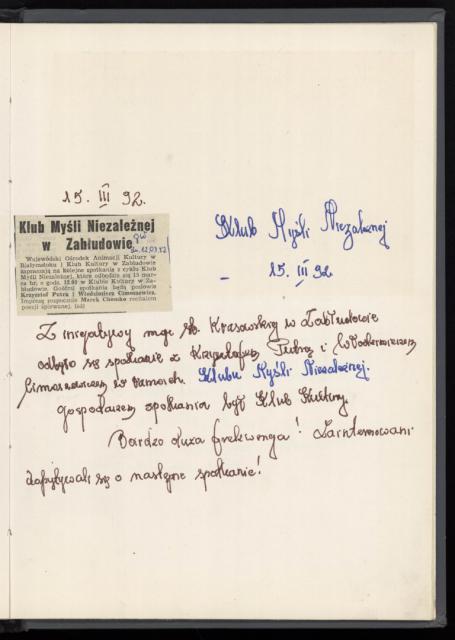 15. III 92.
Klub Myśli Niezależnej
w Zabłudowie
Wojewódzki Ośrodek Animacji Kultury w
Białymstoku i Klub Kultury w Zabłudowie
zapraszają na kolejne spotkanie z cyklu Klub
Myśli Niezależnej, które odbędzie się 15 mar-
ca br. o godz. 12.00 w Klubie Kultury w Za-
błudowie. Gośćmi spotkania będą posłowie
Krzysztof Putra i Włodzimierz Cimoszewicz.
Imprezę rozpocznie Marek Chomko recitalem
poezji śpiewanej.
Klub Myśli Niezależnej
- 15. III 92
Z inicjatywy mgr Krasowskiej w Zabłudowie
odbyło się spotkanie z Krzysztofem Putrą i Włodzimierzem
Cimoszewiczem w ramach Klubu Myśli Niezależnej.
Gospodarzem spotkania był Klub Kultury.
Bardzo duża frekwencja! Zainteresowani
dopytywali się o następne spotkanie!